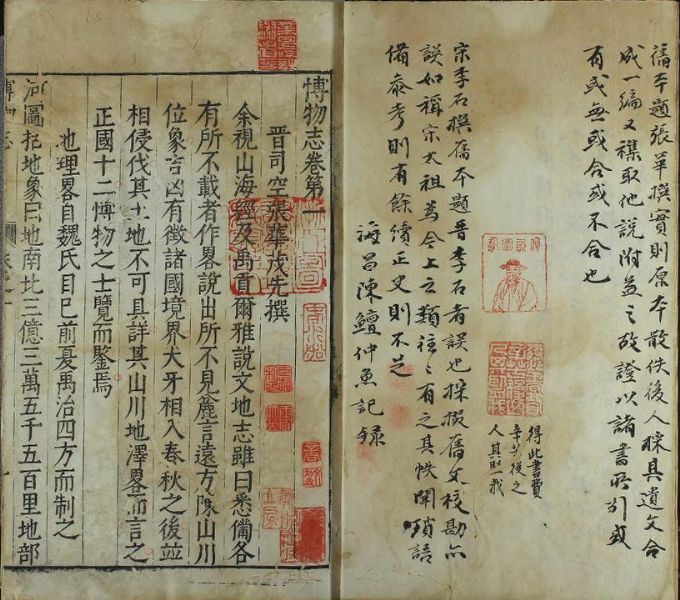 舊本題張華撰實則原本散佚後人採其遺文合
成一編又襍取他說附益之故證以諸書所引或
有或無或合或不合也
得此書費
辛苦後之
人其鑒我
仲魚圖象
宋李石撰舊本題晉李石者誤也採掇舊文校勘亦
誤如稱宋太祖為今上之類往〻有之其帙聞瑣語
備參考則有餘續正史則不足
海昌陳鱣仲魚記錄
愽物志卷第一
晉司空張華茂先撰
余視山海經及禹貢爾雅說文地志雖曰悉備各
有所不載者作畧說出所不見麄言遠方陳山川
位象吉凶有徵諸國境界犬牙相入春秋之後並
相侵伐其土地不可具詳其山川地澤畧而言之
正國十二愽物之士覽而鑒焉
地理畧自魏氏目巳前夏禹治四方而制之
河圖括地象曰地南北三億三萬五千五百里地部